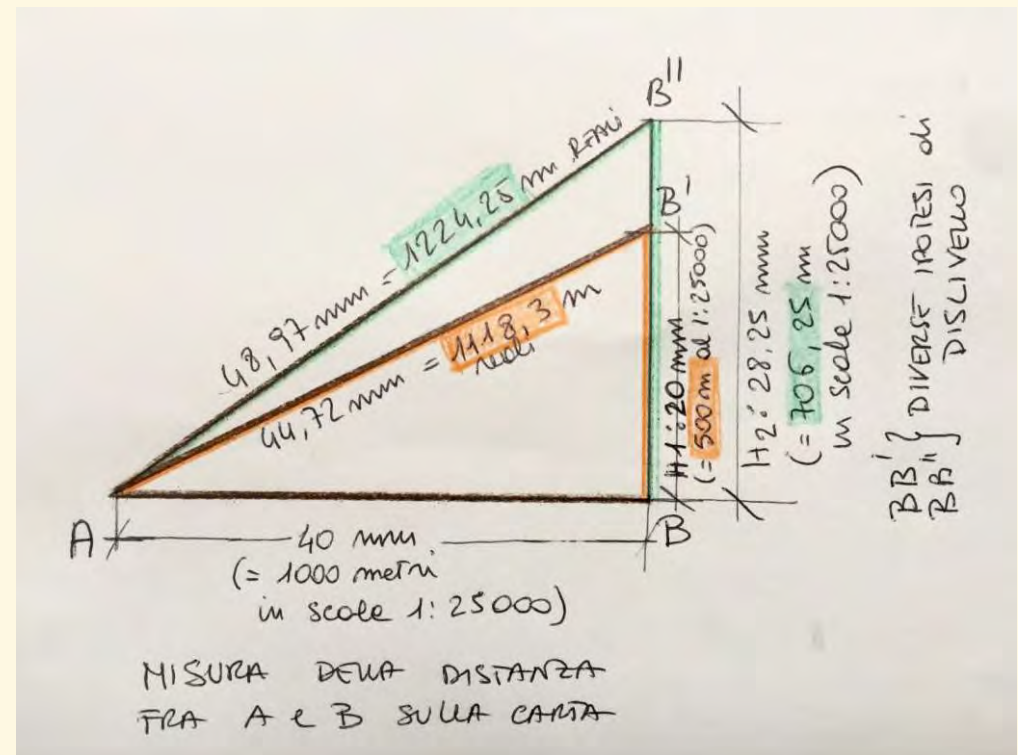 B''
48,97 mm = 1224,25 m REALI
B'
44,72 mm = 1118,3 m
reali
H1: 20 mm
(= 500 m al 1:25000)
H2: 28,25 mm
(= 706,25 m
in scale 1:25000)
BB'
BB'' } DIVERSE IPOTESI di
DISLIVELLO
A
B
40 mm
(= 1000 metri
in scale 1:25000)
MISURA DELLA DISTANZA
FRA A e B SULLA CARTA